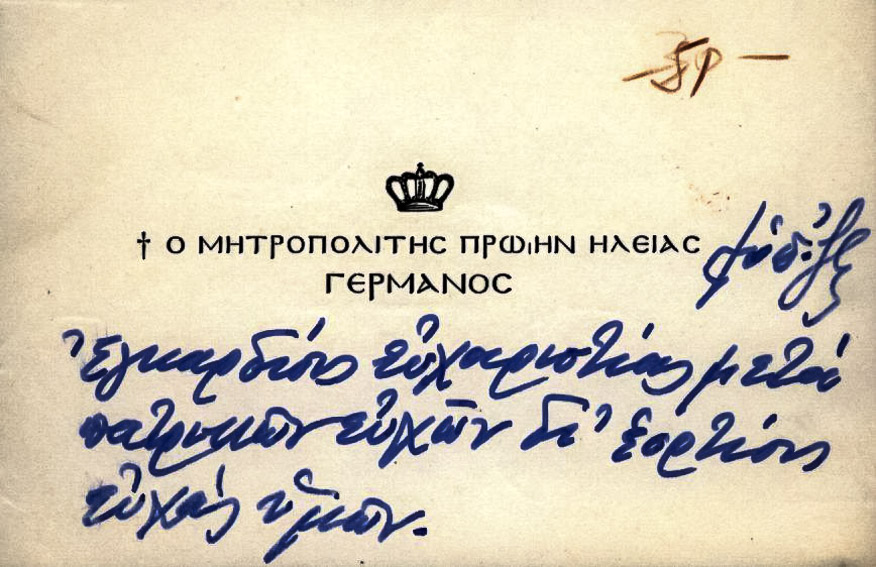 † Ο ΜΗΤΡΟΠΟΛΙΤΗΣ ΠΡΩΙΗΝ ΗΛΕΙΑΣ
ΓΕΡΜΑΝΟΣ
Ἐγκαρδίους εὐχαριστίας μετά
πατρικῶν εὐχῶν δι' ἑορτίους
εὐχάς ὑμῶν.